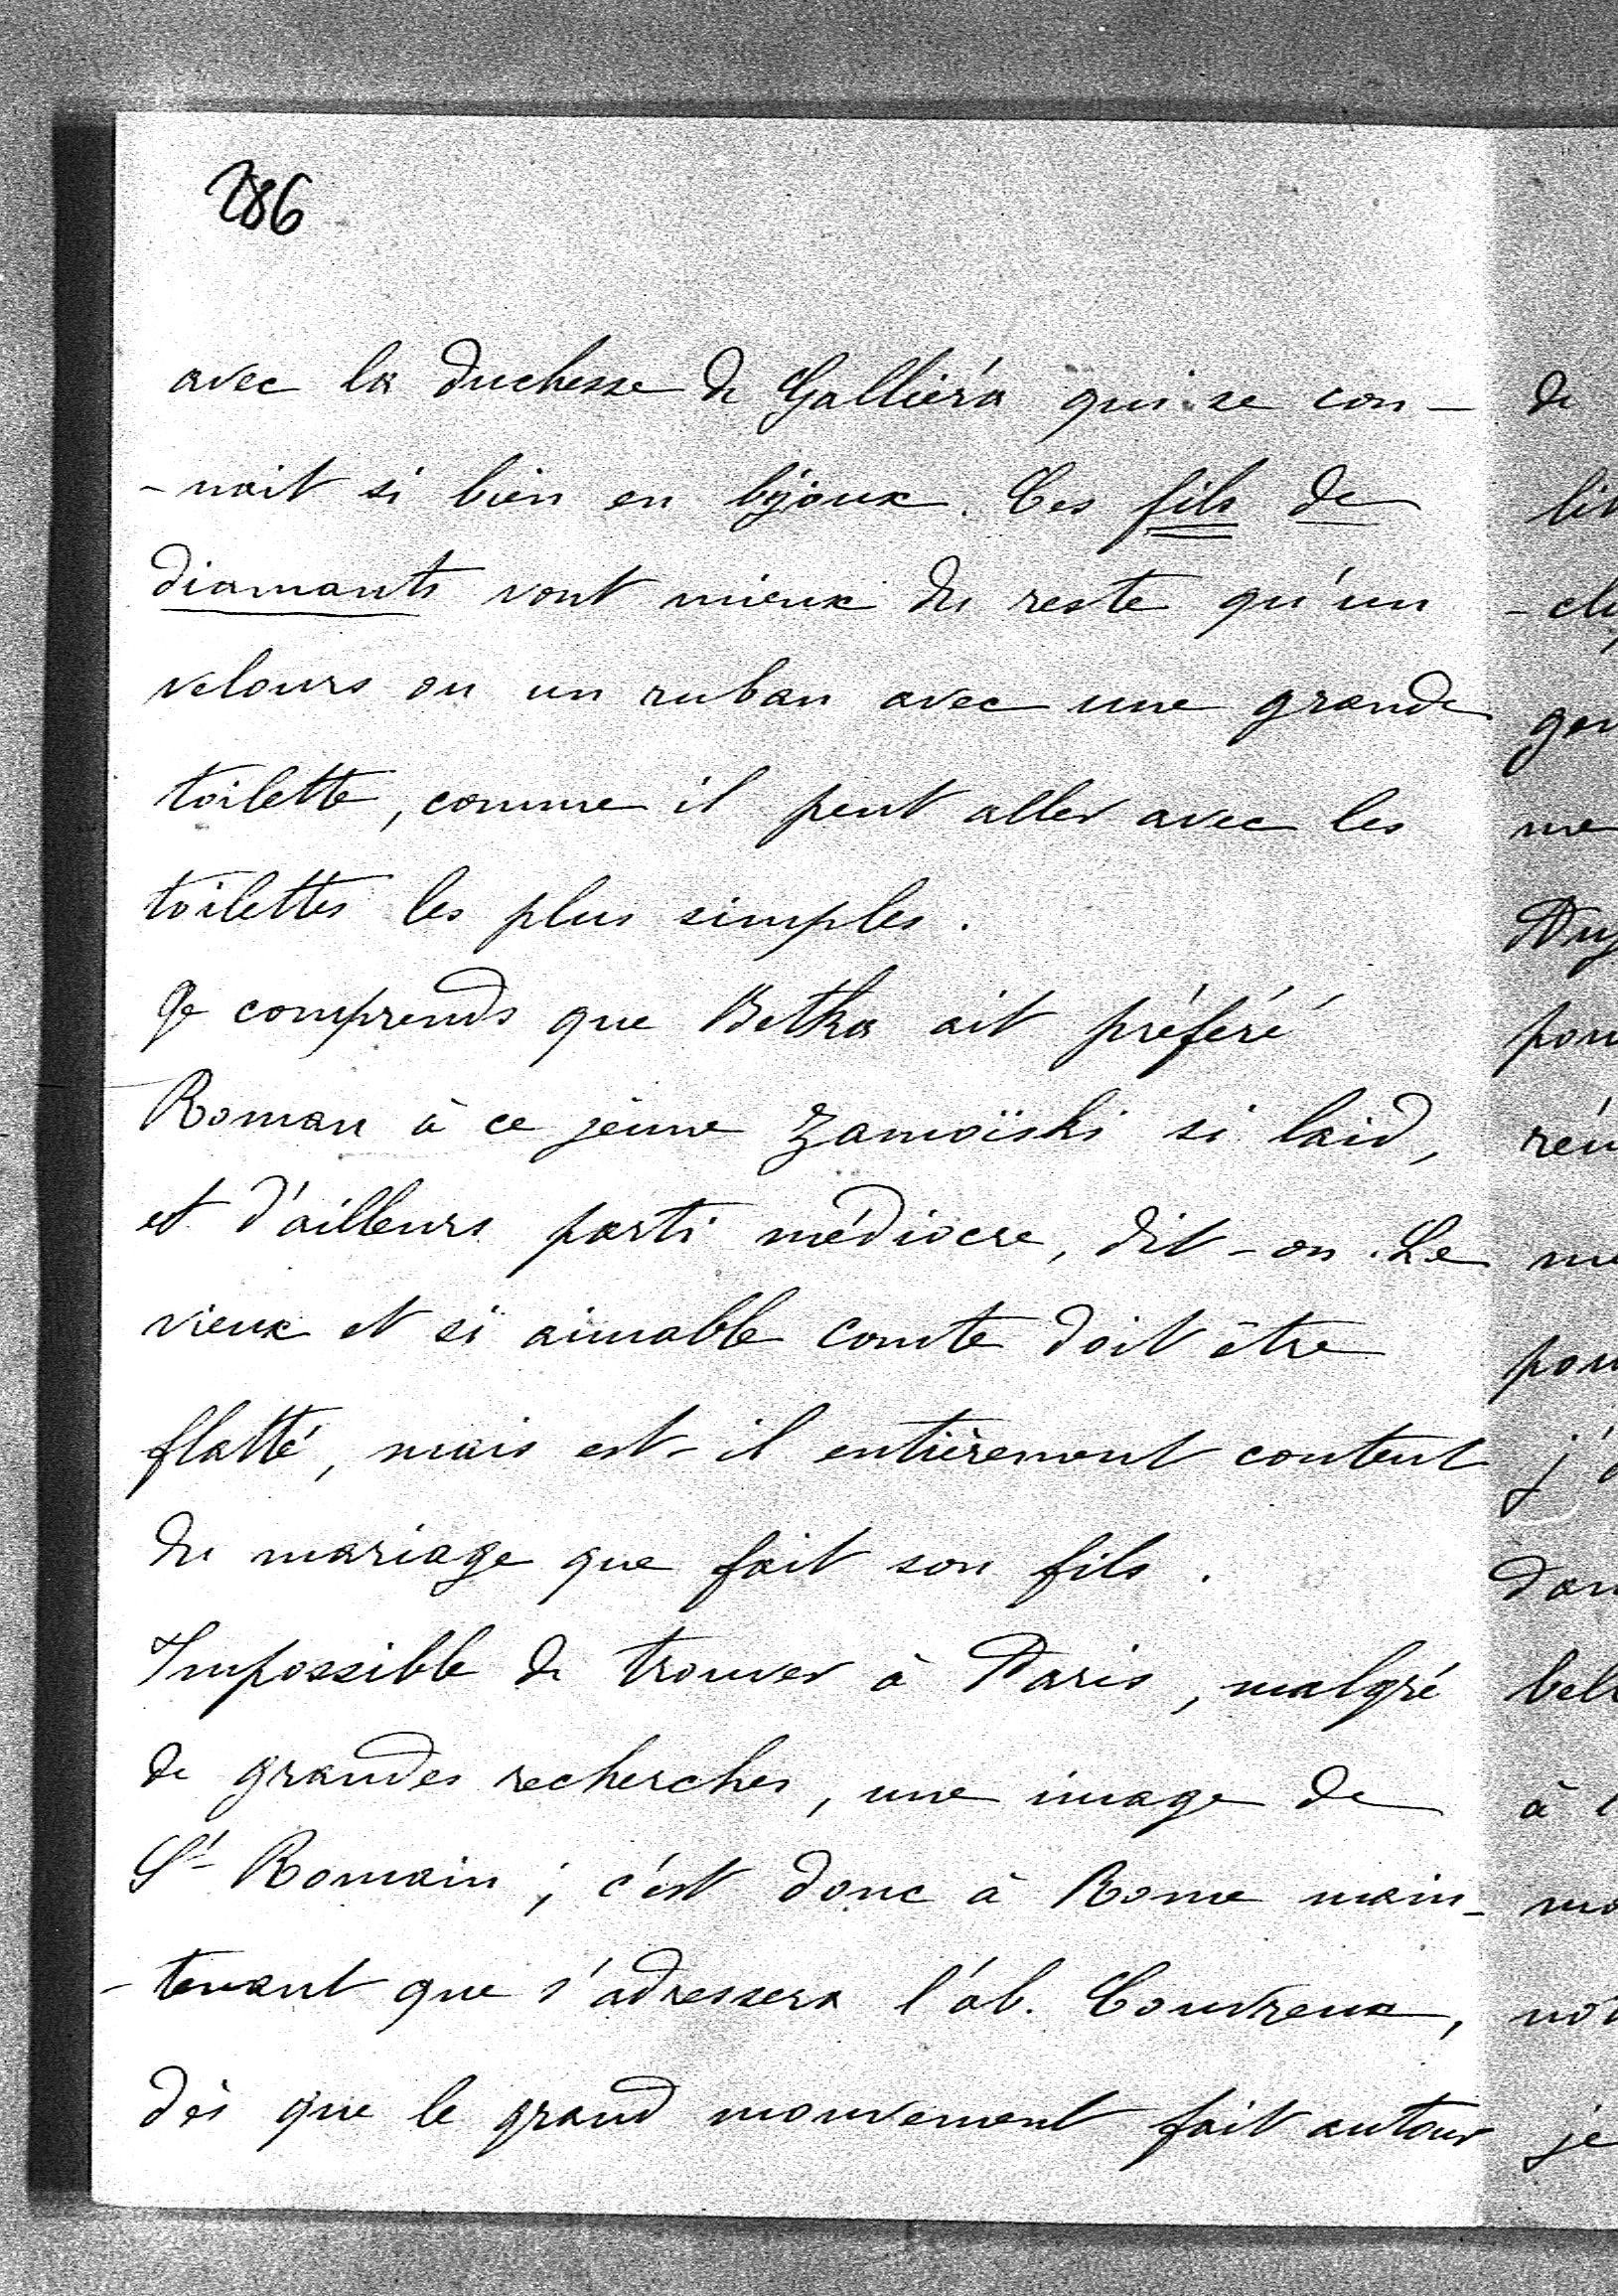 286
avec la duchesse de Galliéra qui se con-
-nait si bien en bijoux. Ces fils de
diamants vont mieux du reste qu'un
velours ou un ruban avec une grande
toilette, comme il peut aller avec les
toilettes les plus simples.
Je comprends que Betka ait préféré
Roman à ce jeune Zamoïski si laid,
et d'ailleurs parti médiocre, dit-on. Le
vieux et si aimable comte doit être
flatté, mais est-il entièrement content
du mariage que fait son fils.
Impossible de trouver à Paris, malgré
de grandes recherches, une image de
St Romain ; c'est donc à Rome main-
-tenant que s'adressera l'ab. Couvreux,
dès que le grand mouvement fait autour